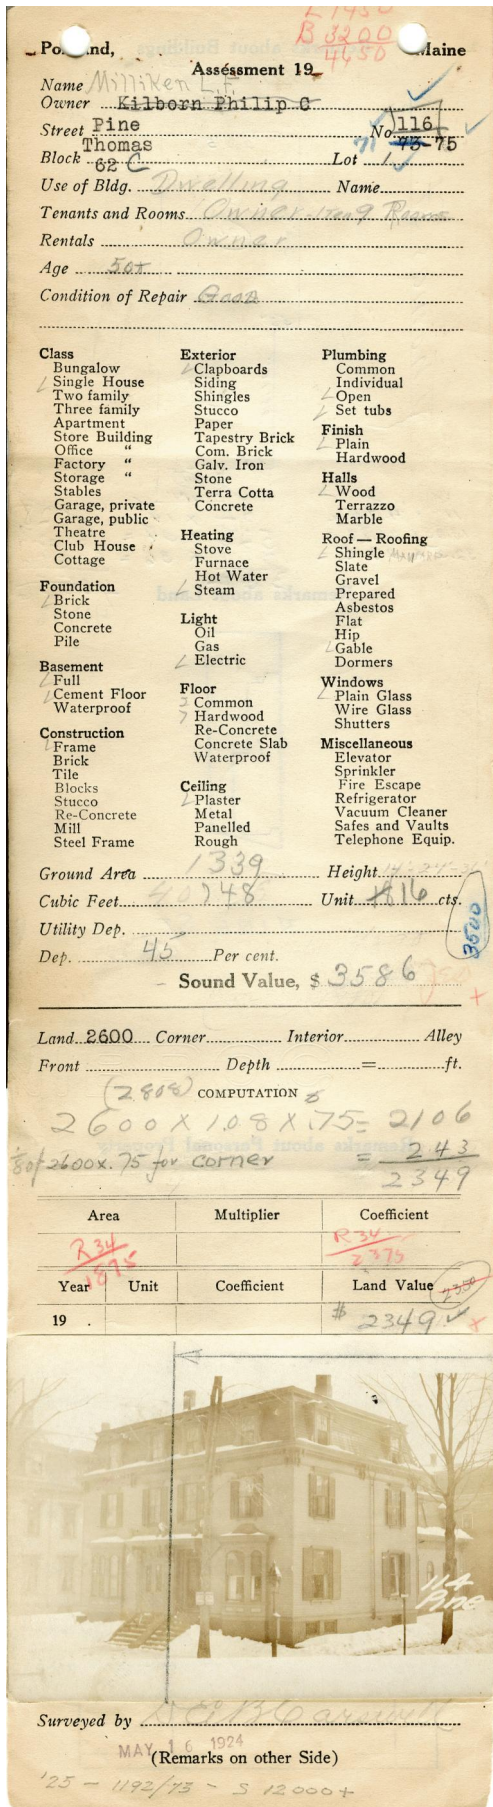 L 1450
B 3200
4650
Portland, Maine
Assessment 19
Name Milliken L. F.
Owner Kilborn Philip C
Street Pine No 116
Thomas 71 73-75
Block 62 C Lot 1
Use of Bldg. Dwelling Name
Tenants and Rooms Owner 9 Rooms
Rentals Owner
Age 50+
Condition of Repair Good
Class
Bungalow
Single House
Two family
Three family
Apartment
Store Building
Office "
Factory "
Storage "
Stables
Garage, private
Garage, public
Theatre
Club House
Cottage
Foundation
Brick
Stone
Concrete
Pile
Basement
Full
Cement Floor
Waterproof
Construction
Frame
Brick
Tile
Blocks
Stucco
Re-Concrete
Mill
Steel Frame
Exterior
Clapboards
Siding
Shingles
Stucco
Paper
Tapestry Brick
Com. Brick
Galv. Iron
Stone
Terra Cotta
Concrete
Heating
Stove
Furnace
Hot Water
Steam
Light
Oil
Gas
Electric
Floor
Common
Hardwood
Re-Concrete
Concrete Slab
Waterproof
Ceiling
Plaster
Metal
Panelled
Rough
Plumbing
Common
Individual
Open
Set tubs
Finish
Plain
Hardwood
Halls
Wood
Terrazzo
Marble
Roof — Roofing
Shingle
Slate
Gravel
Prepared
Asbestos
Flat
Hip
Gable
Dormers
Windows
Plain Glass
Wire Glass
Shutters
Miscellaneous
Elevator
Sprinkler
Fire Escape
Refrigerator
Vacuum Cleaner
Safes and Vaults
Telephone Equip.
Ground Area 1339 Height
Cubic Feet 40748 Unit 16 cts.
Utility Dep. 3500
Dep. 45 Per cent.
Sound Value, $ 3586
Land 2600 Corner Interior Alley
Front Depth = ft.
(2808) COMPUTATION
2600 X 1.08 X .75 = 2106
1/8 of 2600 x .75 for corner = 243
2349
Area Multiplier Coefficient
R34 R34
1875 2375
Year Unit Coefficient Land Value 2350
19 . $ 2349
114
Pine
Surveyed by
MAY 16 1924
(Remarks on other Side)
'25 - 1192/73 - S 12000+